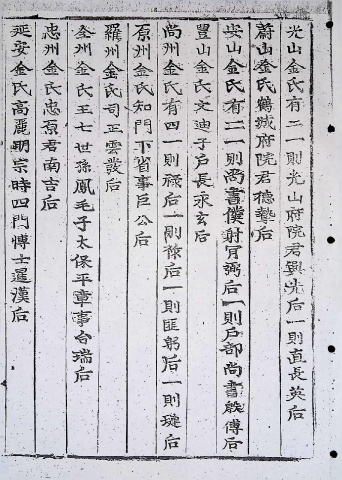 光山金氏有二一則光山府院君興光后一則直長英后
蔚山金氏鶴城府院君德摯后
安山金氏有二一則尚書僕射冝弼后一則戶部尚書殷傅后
豐山金氏文迪子戶長永玄后
尚州金氏有四一則祿后一則后一則匪躬后一則璉后
原州金氏知門下省事巨公后
羅州金氏司正雲發后
金州金氏王七世孫鳳毛子太保平章事台瑞后
忠州金氏忠原君南吉后
延安金氏高麗明宗時四門博士暹漢后